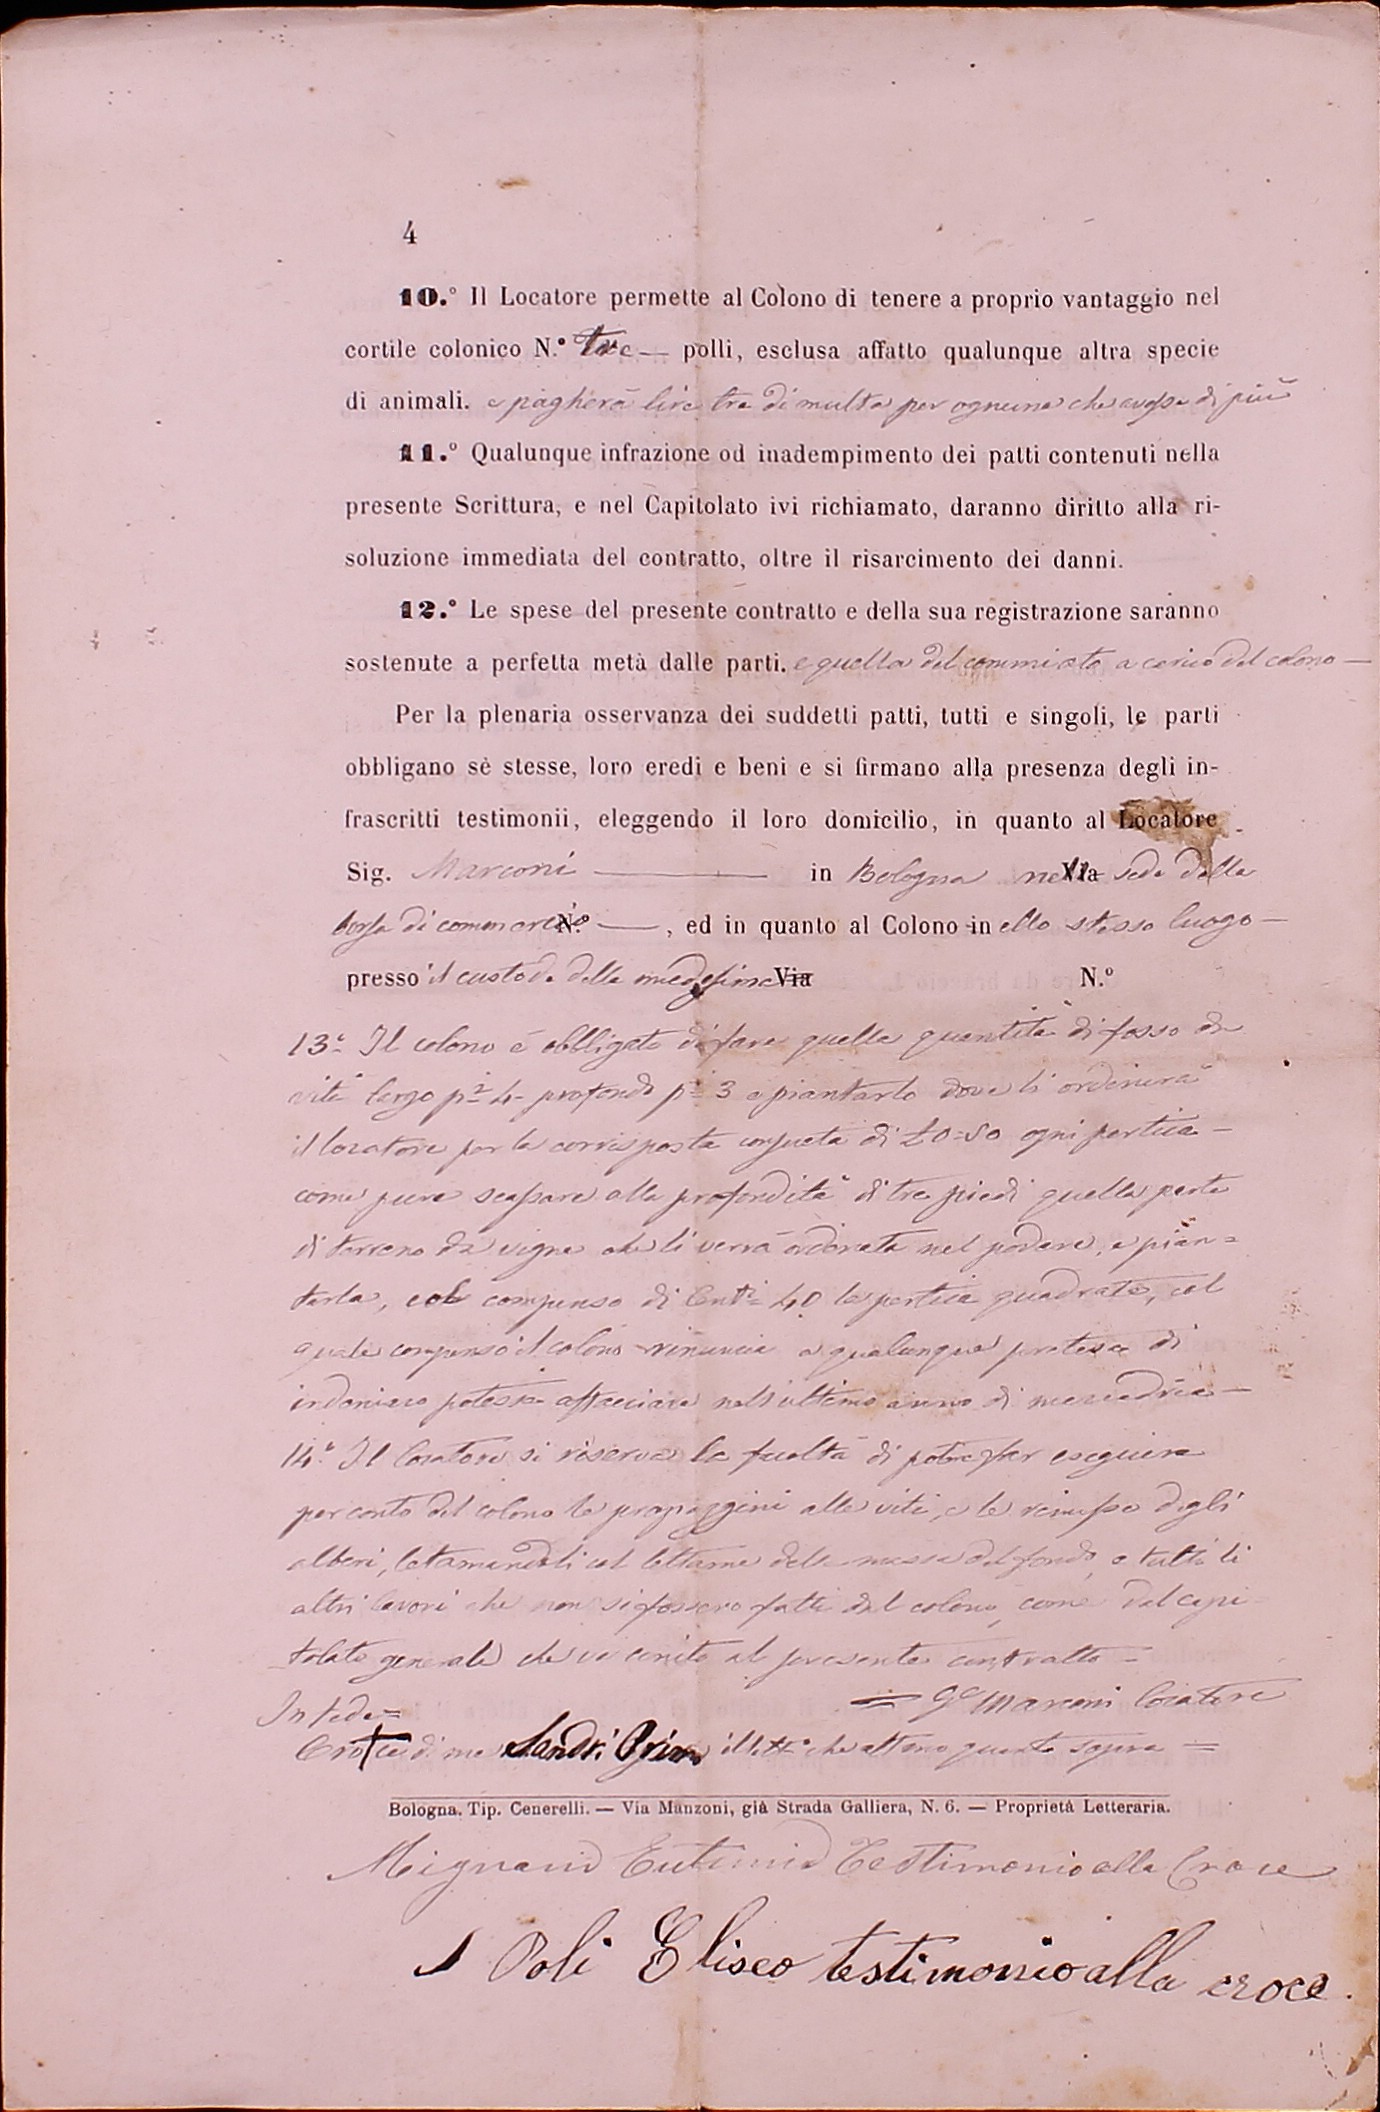 4
10.° Il Locatore permette al Colono di tenere a proprio vantaggio nel
cortile colonico N.° tre — polli, esclusa affatto qualunque altra specie
di animali. e pagherà lire tre di multa per ognuna che avesse di più
11.° Qualunque infrazione od inadempimento dei patti contenuti nella
presente Scrittura, e nel Capitolato ivi richiamato, daranno diritto alla ri-
soluzione immediata del contratto, oltre il risarcimento dei danni.
12.° Le spese del presente contratto e della sua registrazione saranno
sostenute a perfetta metà dalle parti. e quella del commiato a carico del colono —
Per la plenaria osservanza dei suddetti patti, tutti e singoli, le parti
obbligano sè stesse, loro eredi e beni e si firmano alla presenza degli in-
frascritti testimonii, eleggendo il loro domicilio, in quanto al Locatore
Sig. Marconi — in Bologna nella Via sede della
borsa di commercio N.° —, ed in quanto al Colono in ello stesso luogo —
presso il custode della medesima Via N.°
13.° Il colono è obbligato di fare quella quantità di fosso da
viti largo p.i 4 - profondo p.i 3 e piantarlo dove li ordinerà
il locatore per la corrisposta consueta di £ 0=50 ogni pertica —
come pure scassare alla profondità di tre piedi quella parte
di terreno da vigna che li verrà ordinata nel podere, e pian=
tarla, col compenso di Cent.i 40 la pertica quadrata, col
quale compenso il colono rinuncia a qualunque pretesa di
indenizzo potesse affacciare nell'ultimo anno di mezzadria —
14.° Il locatore si riserva la facoltà di potre far eseguire
per conto del colono le propaggini alle viti, e le rimesse degli
alberi, letamandoli col lettame della massa del fondo, e tutti li
altri lavori che non si fossero fatti dal colono, come dal capi
tolato generale che va unito al presente contratto —
In fede = = G Marconi locatore
Cro+ce di me Sandri Primo illett.o che attono quanto sopra =
Bologna. Tip. Cenerelli. — Via Manzoni, già Strada Galliera, N. 6. — Proprietà Letteraria.
Mignani Eutimio Testimonio alla Croce
Poli Eliseo testimonio alla croce.